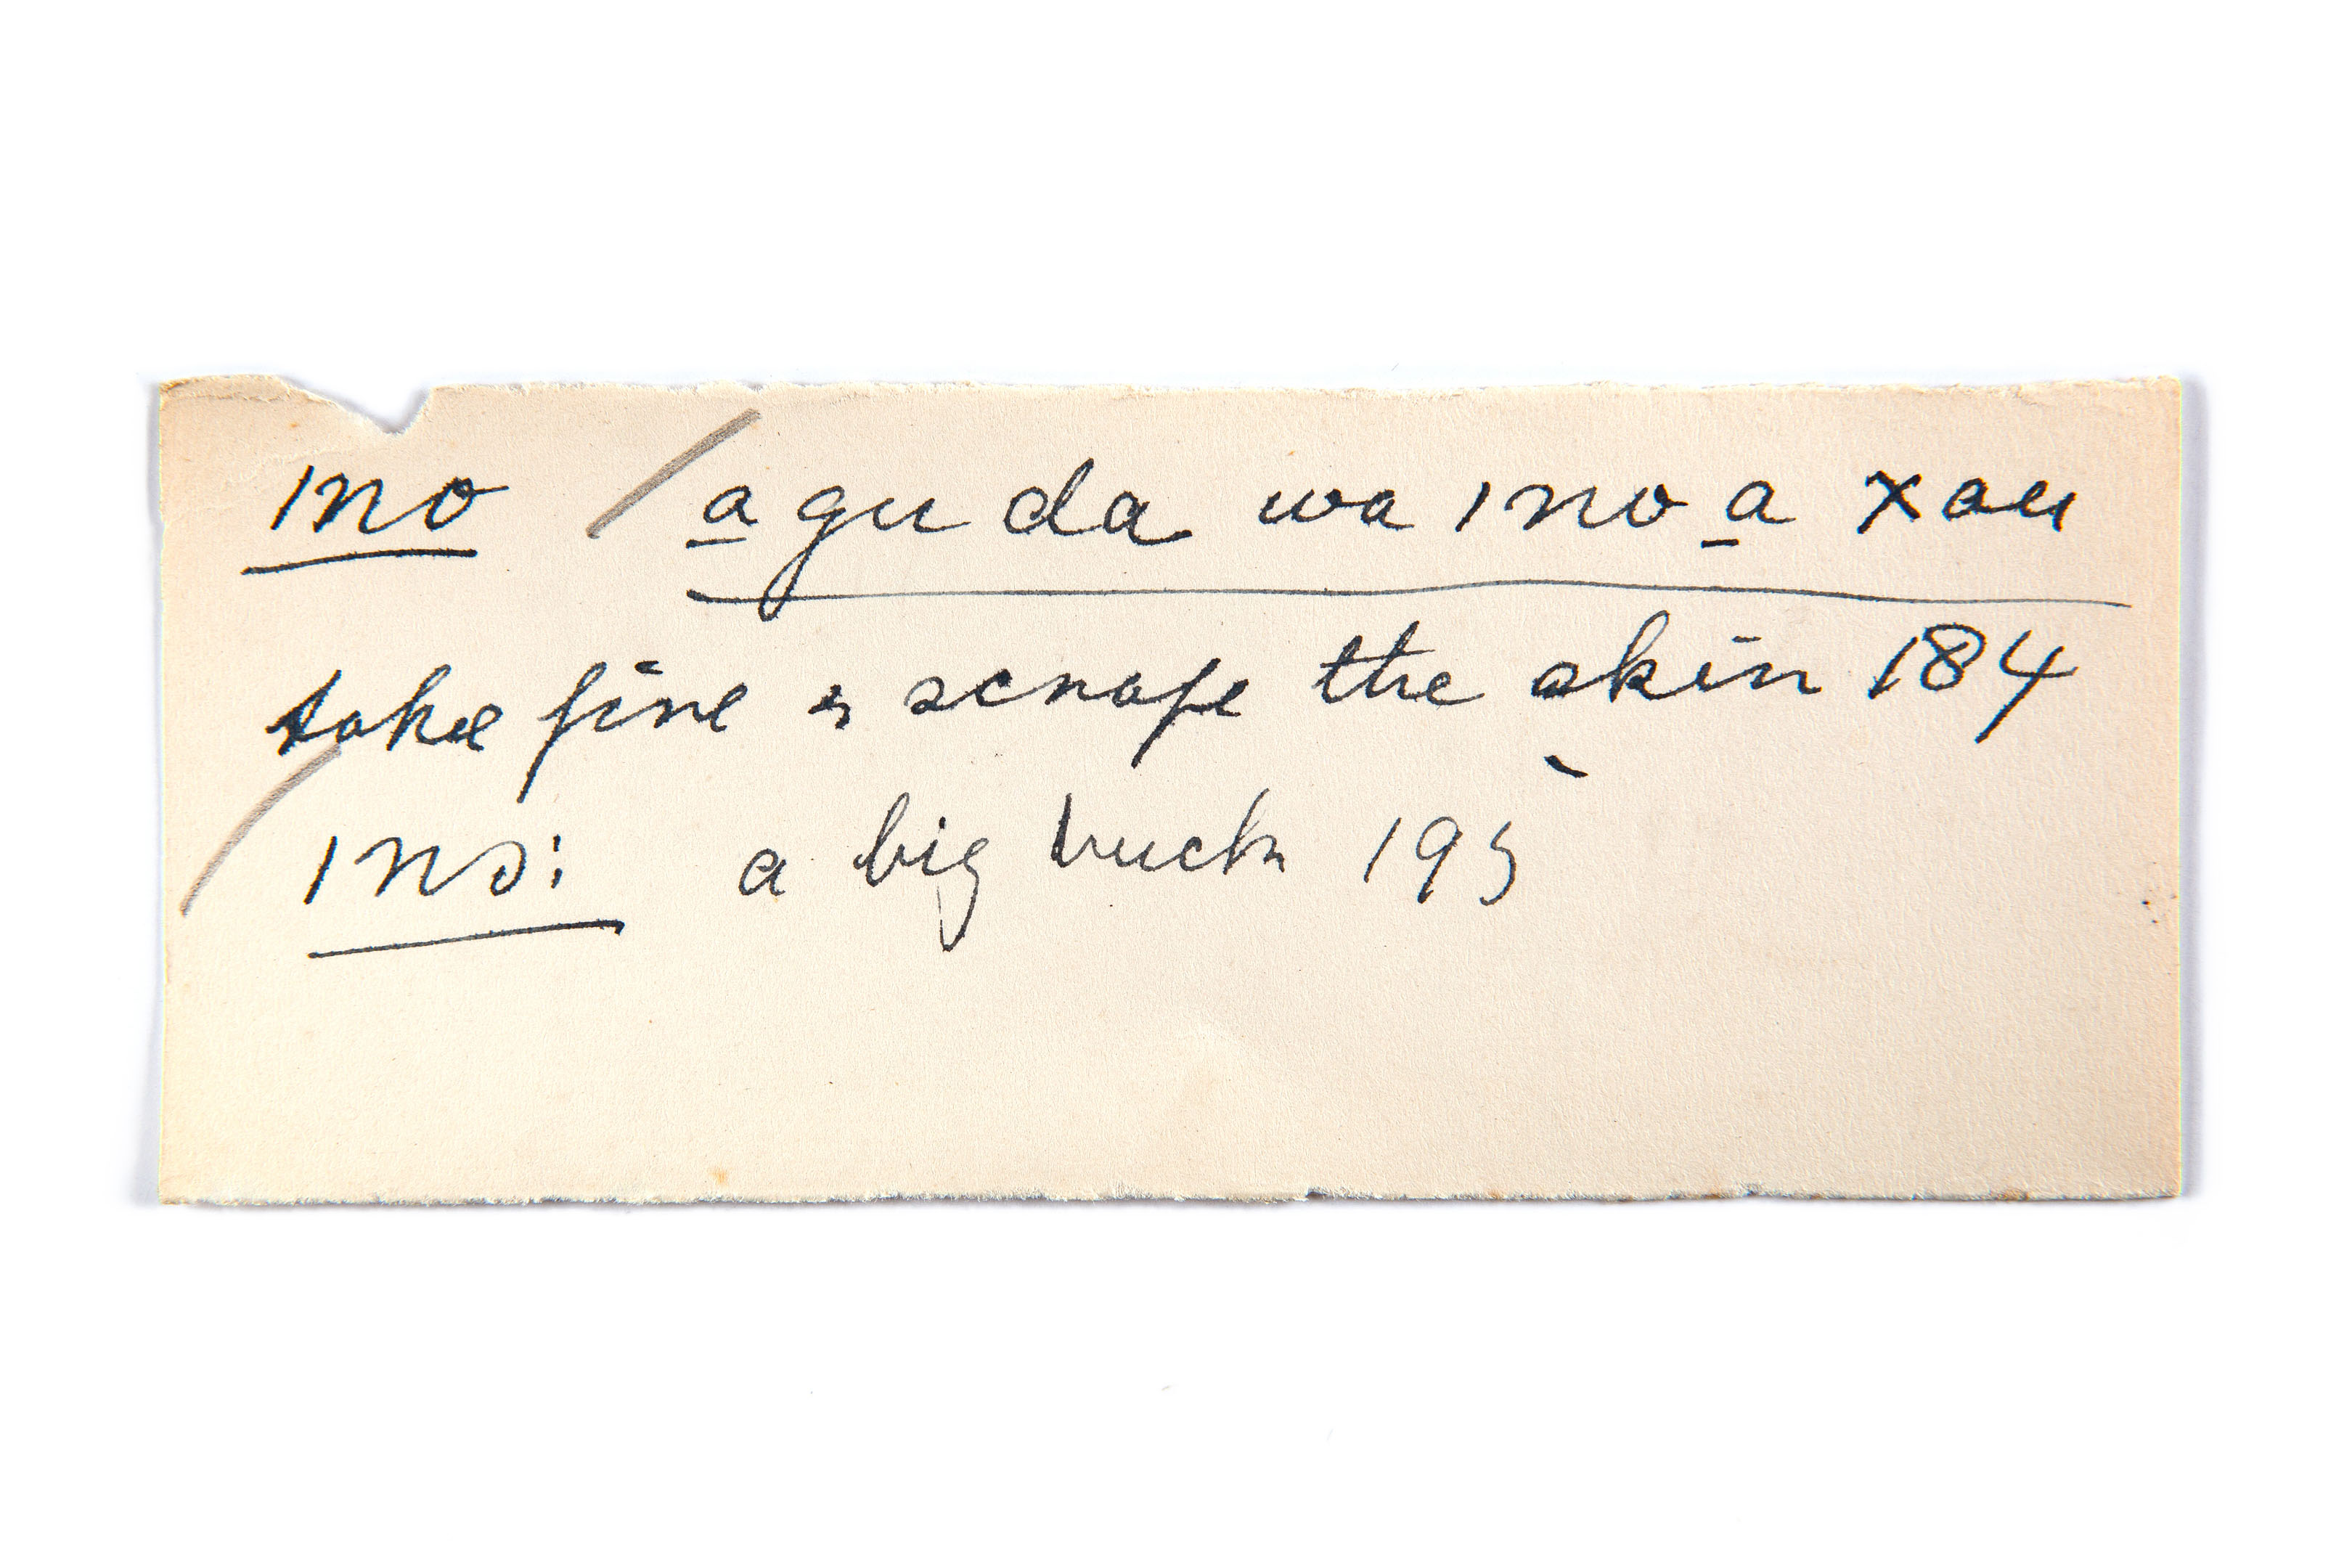 ıno / a̱guda waınoa̱ xau
take fire & scrape the skin 184
/ ıno: a big buck 195